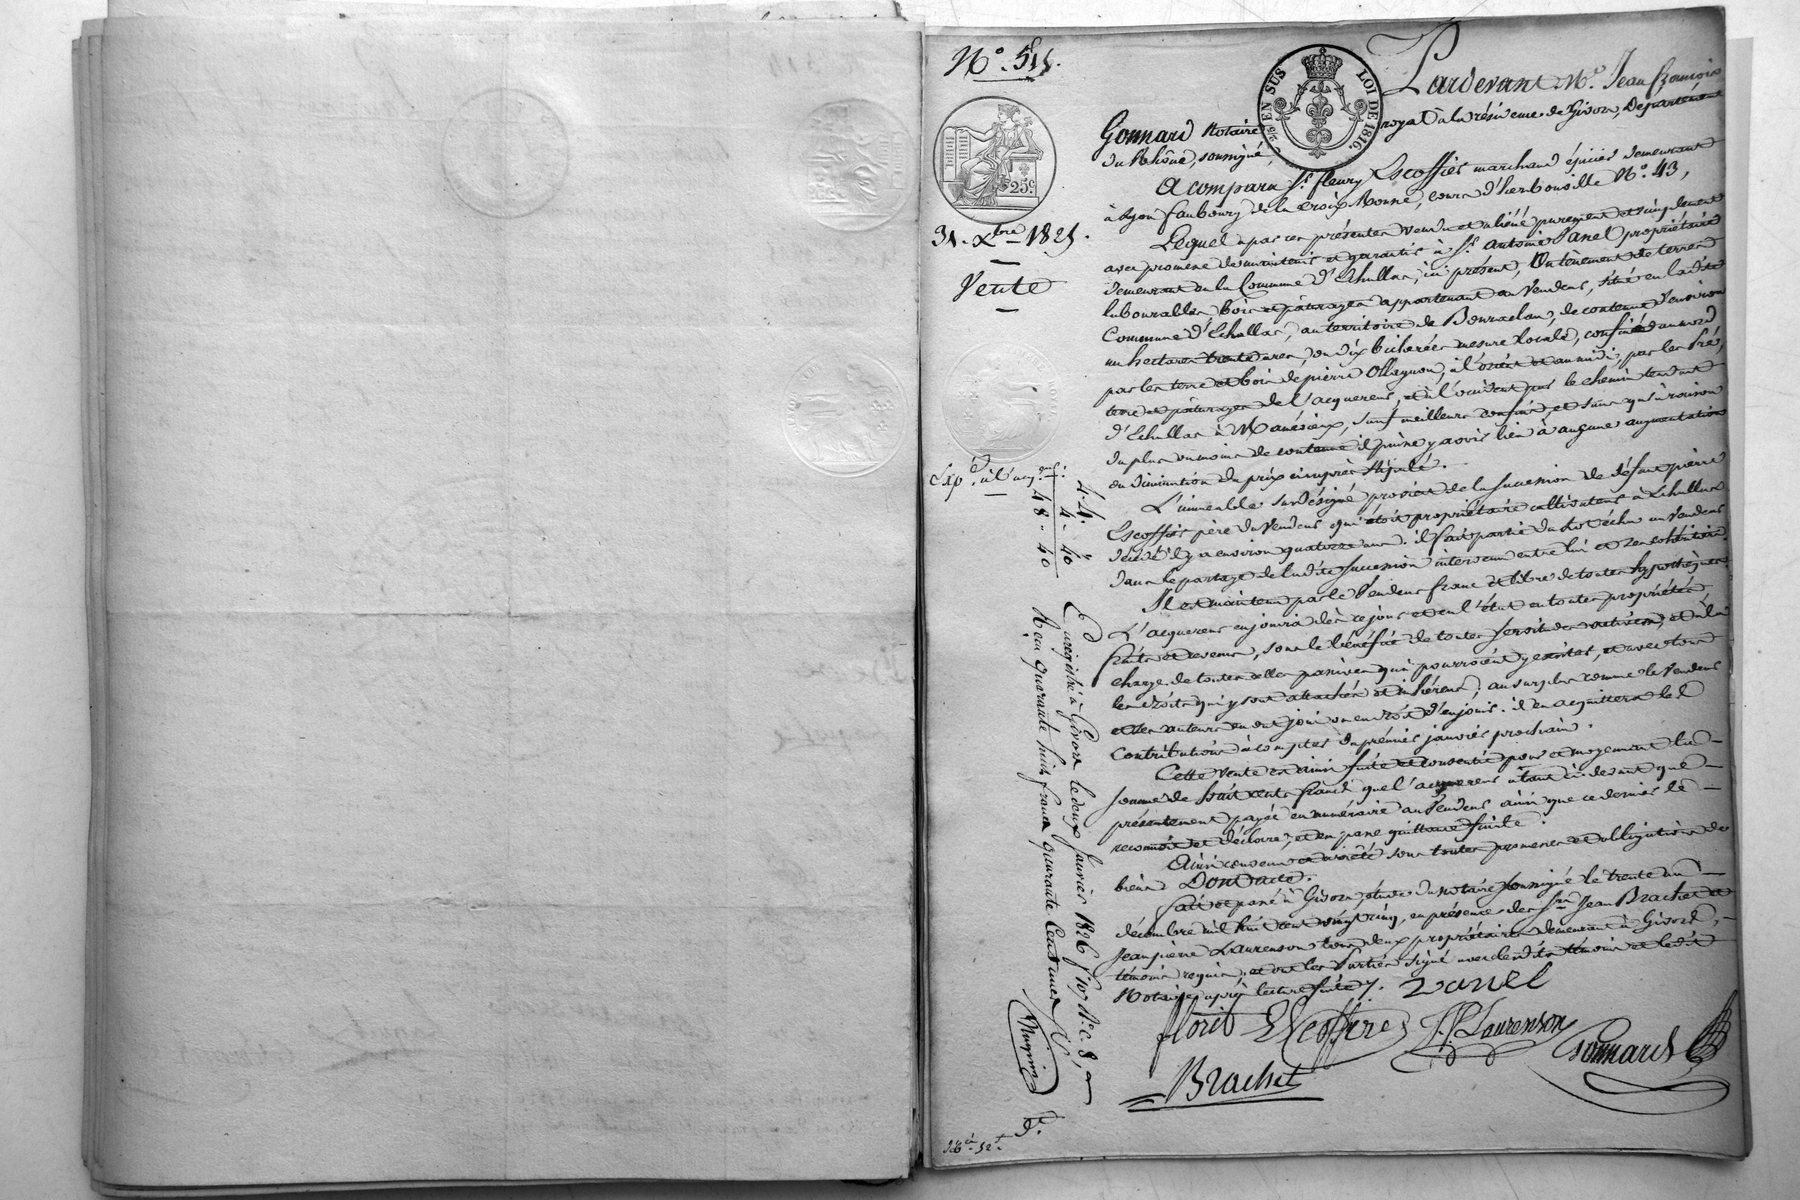 N.° 515.
EN SUS
LOI DE 1816.
25.c
31. Xbre 1825.
Vente
Pardevant M.e Jean François
Gonnard Notaire royal à la résidence de Givors, Département
du Rhône, soussigné,
A comparu Sr. fleury Escoffier marchand épicier demeurant
à Lyon faubourg de la Croix Rousse, cours d'herbouville N.° 43,
Lequel a par ces présentes vendu et aliéné purement et simplement
avec promesse de maintenir et garantir à Sr. antoine Vanel propriétaire
demeurant en la Commune d'Echallas, ici présent, Un tènement de terres
labourables, bois et pâturages appartenant au Vendeur, situé en ladite
Commune d'Echallas, au territoire de contenue d'environ
un hectare trente ares, ou dix bicherées mesure locale, confiné au nord
par les terre et bois de pierre Ollagnon, à l'orient et au midi, par les Pré,
terre et pâturages de l'acquereur, et à l'occident par le chemin tendant
d'Echallas à sauf meilleurs confins et sans qu'à raison
du plus ou moins de contenue il puisse y avoir lieu à aucune augmentation
ou diminution du prix ci-après stipulé.
L'immeuble sus désigné provient de la succession de défunt pierre
Escoffier père du Vendeur qui étoit propriétaire cultivateur à Echallas
décédé il y a environ quatorze ans. il fait partie du lot échu au Vendeur
dans le partage de ladite succession intervenu entre lui et ses cohéritiers.
Il est maintenu par le Vendeur franc et libre de toutes hypothèques.
L'acquereur en jouira dès ce jour et en l'état en toutes propriétés,
fruits et revenus, sous le bénéfice de toutes servitudes actives, et à la
charge de toutes celles passives qui pourroient y exister, et avec tous
les droits qui y sont attachés et inhérens, au surplus comme le Vendeur
et ses auteurs en ont joui ou eu droit d'en jouir. il en acquittera les
Contributions à compter du premier janvier prochain.
Cette vente est ainsi faite et consentie pour et moyennant la
somme de huit cents francs que l'acquereur a tout ci-devant que
présentement payée en numéraire au Vendeur ainsi que ce dernier le
reconnoît et déclare, et en passe quittance finite.
Ainsi convenu et arrêté sous toutes promesses et obligations de
biens Dont acte.
fait et passé à Givors, étude du notaire soussigné le trente un
décembre mil huit cent vingt cinq, en présence des Srs. Jean Brachet et
Jean pierre Laurenson tous deux propriétaires demeurant à Givors,
témoins requis, et ont les Parties signé avec lesdits témoins et ledit
Notaire après lecture faite.
Vanel
floris Escoffier
J. P. Laurenson
Gonnard
Brachet
Exp.on à l'acq.
44.
4-40
48-40
Enregistré à Givors le deux janvier 1826 f.° 107 R.° c. 8,
Reçu quarante huit francs quarante centimes